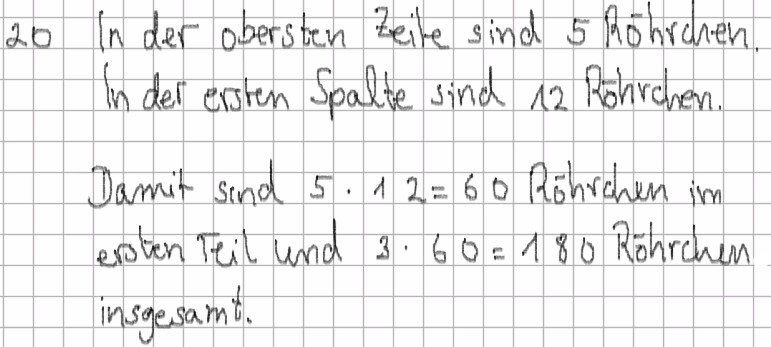 20 In der obersten Zeile sind 5 Röhrchen.
In der ersten Spalte sind 12 Röhrchen.
Damit sind 5 · 12 = 60 Röhrchen im
ersten Teil und 3 · 60 = 180 Röhrchen
insgesamt.